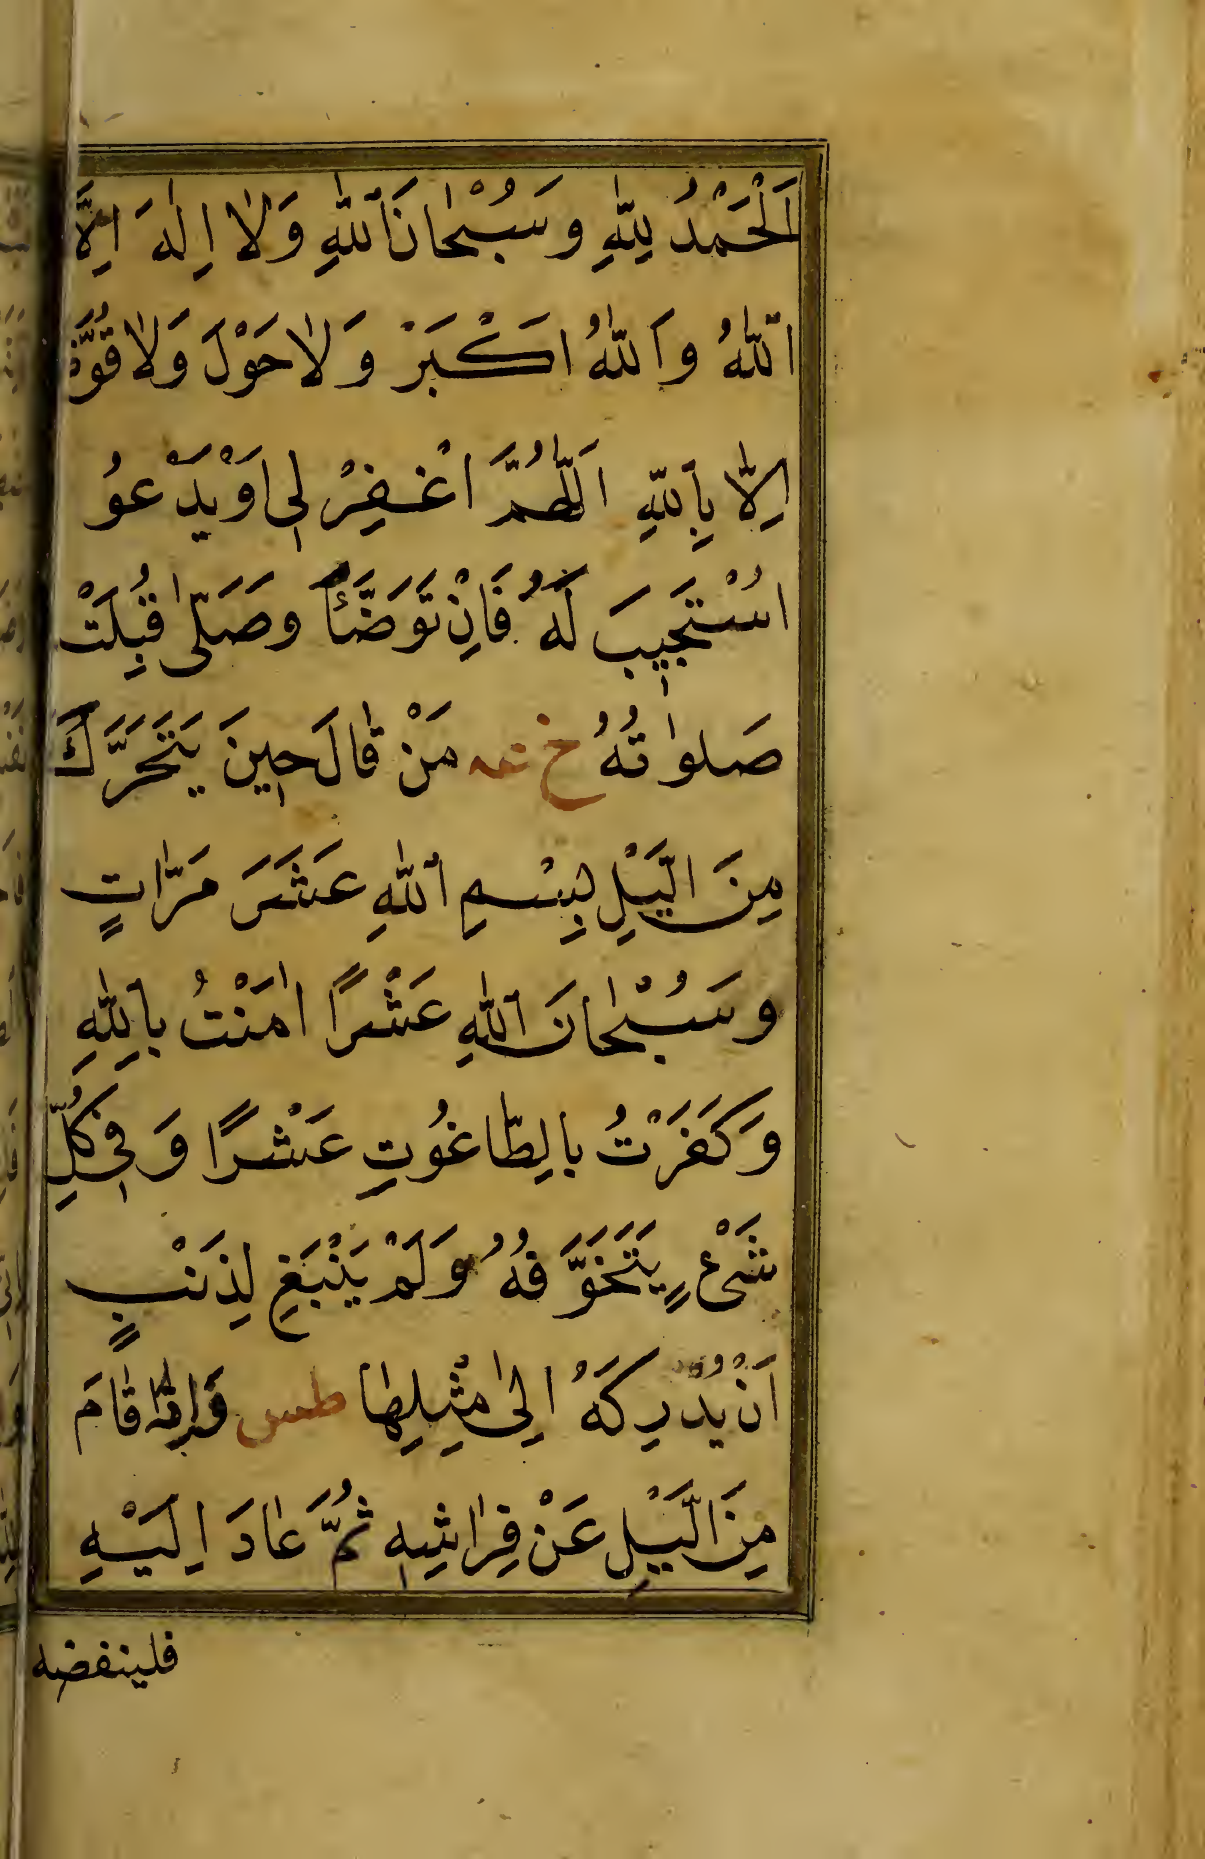 اَلْحَمْدُ لِلّٰهِ وَسُبْحَانَ اللّٰهِ وَلَا اِلٰهَ اِلَّا
اللّٰهُ وَاللّٰهُ اَكْبَرْ وَلَا حَوْلَ وَلَا قُوَّةَ
اِلَّا بِاللّٰهِ اَللّٰهُمَّ اغْفِرْ لِي اَوْ يَدْعُو
اسْتُجِيبَ لَهُ فَاِنْ تَوَضَّأَ وَصَلّٰى قُبِلَتْ
صَلٰوتُهُ خ عه مَنْ قَالَ حِينَ يَتَحَرَّكَ
مِنَ الَّيْلِ بِسْمِ اللّٰهِ عَشَرَ مَرَّاتٍ
وَسُبْحَانَ اللّٰهِ عَشْرًا اٰمَنْتُ بِاللّٰهِ
وَكَفَرْتُ بِالطَّاغُوتِ عَشْرًا وَفِي كُلِّ
شَيْءٍ يَتَخَوَّفُهُ وَلَمْ يَنْبَغِ لِذَنْبٍ
اَنْ يُدْرِكَهُ اِلٰى مِثْلِهَا طس وَاِذَا قَامَ
مِنَ الَّيْلِ عَنْ فِرَاشِهِ ثُمَّ عَادَ اِلَيْهِ
فلينفضه